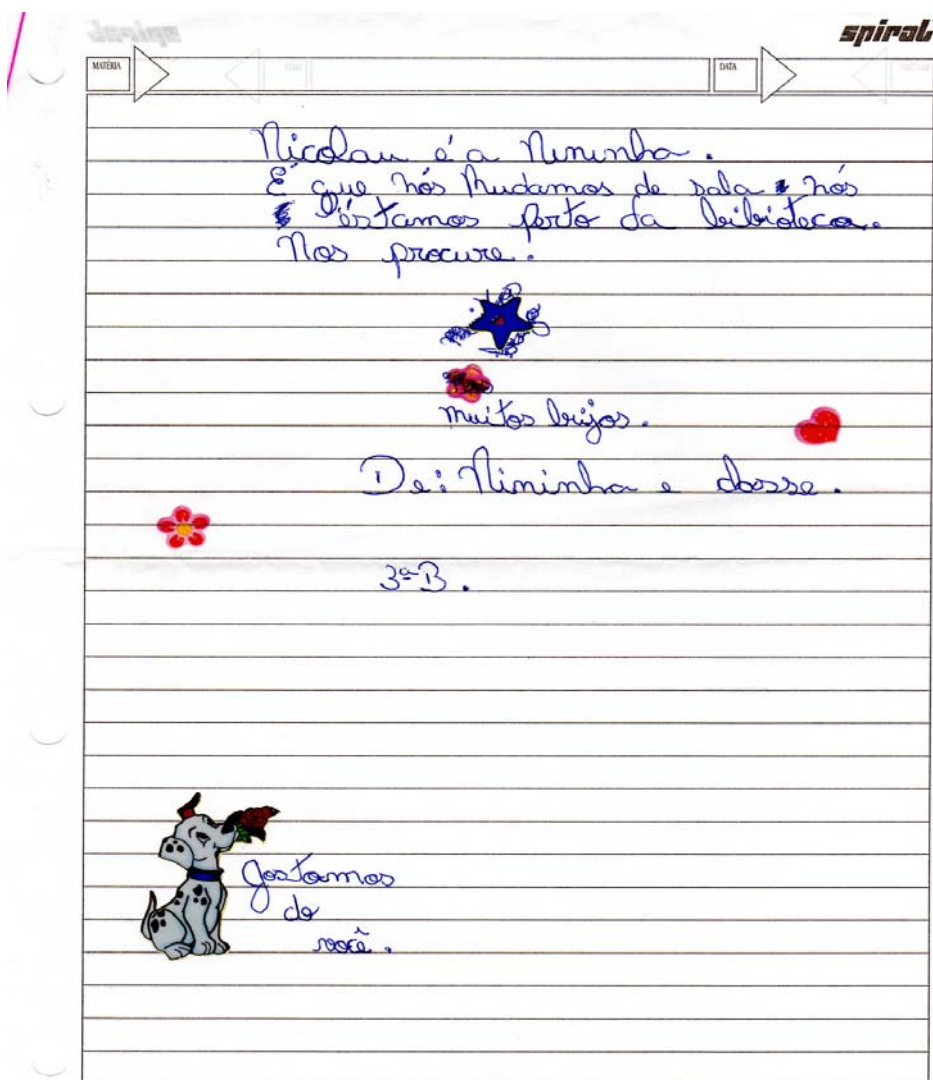 spiral
MATÉRIA DATA
Nicolau é a Nininha.
É que nós mudamos de sala nós
estamos perto da bibioteca.
Nos procure.
muitos beijos.
De: Nininha e classe.
3ª B.
Gostamos
de
você.